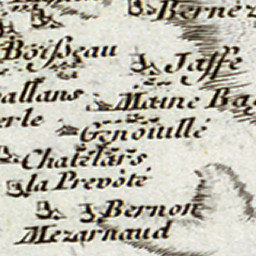 Bernéz
Boißeau
Jaffe
allans
Maine Bag
erle
Genouillé
Chatelars
la Prevôté
Bernon
Mezarnaud